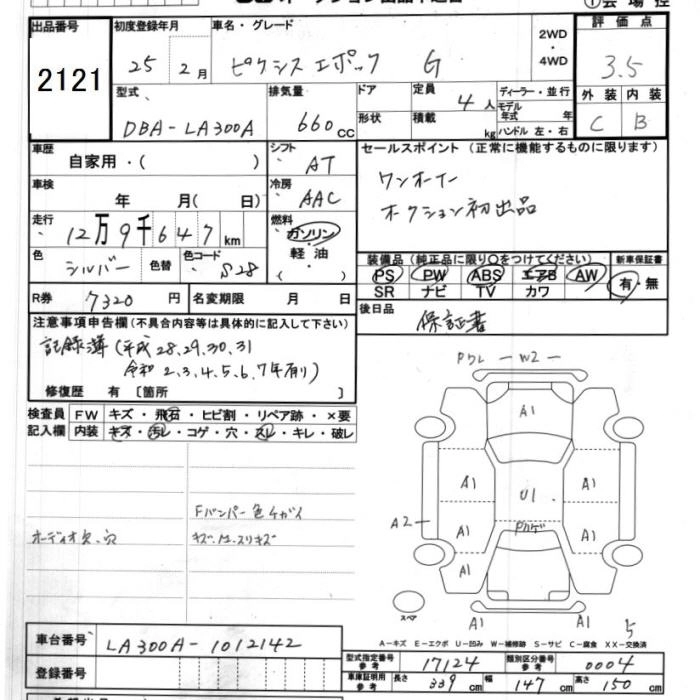 出品番号 初度登録年月 車名・グレード 2WD ・ 4WD 評価点
2121 25 2月 ピクシス エポック G 3.5
型式 排気量 ドア 定員 4人 ディーラー・並行 外装 内装
DBA-LA300A 660cc 形状 積載 kg モデル年式 年 ハンドル 左・右 C B
車歴 自家用・( ) シフト AT セールスポイント (正常に機能するものに限ります)
車検 年 月( 日) 冷房 AAC ワンオーナー
オークション初出品
走行 12万9千647km 燃料 ガソリン・軽油・( )
色 シルバー 色替 色コード S28 装備品 (純正品に限り○をつけてください) 新車保証書
PS PW ABS エアB AW 有・無
SR ナビ TV カワ
R券 7320円 名変期限 月 日 後日品 保証書
注意事項申告欄(不具合内容等は具体的に記入して下さい)
記録簿(平成28,29,30,31
令和2,3,4,5,6,7年有り)
修復歴 有 〔箇所 〕
検査員記入欄 FW キズ・飛石・ヒビ割・リペア跡・×要
内装 キズ・汚レ・コゲ・穴・スレ・キレ・破レ
W2
A1
A1 U1 A1
A2 A1 A1
A1 A1
A1 A1
Fバンパー色チガイ
オーディオ欠、穴
スペア
5
A-キズ E-エクボ U-凹み W-補修跡 S-サビ C-腐食 XX-交換済
車台番号 LA300A-1012142
型式指定番号参考 17124 類別区分番号参考 0004
登録番号 車庫証明用参考 長さ 339cm 幅 147cm 高さ 150cm